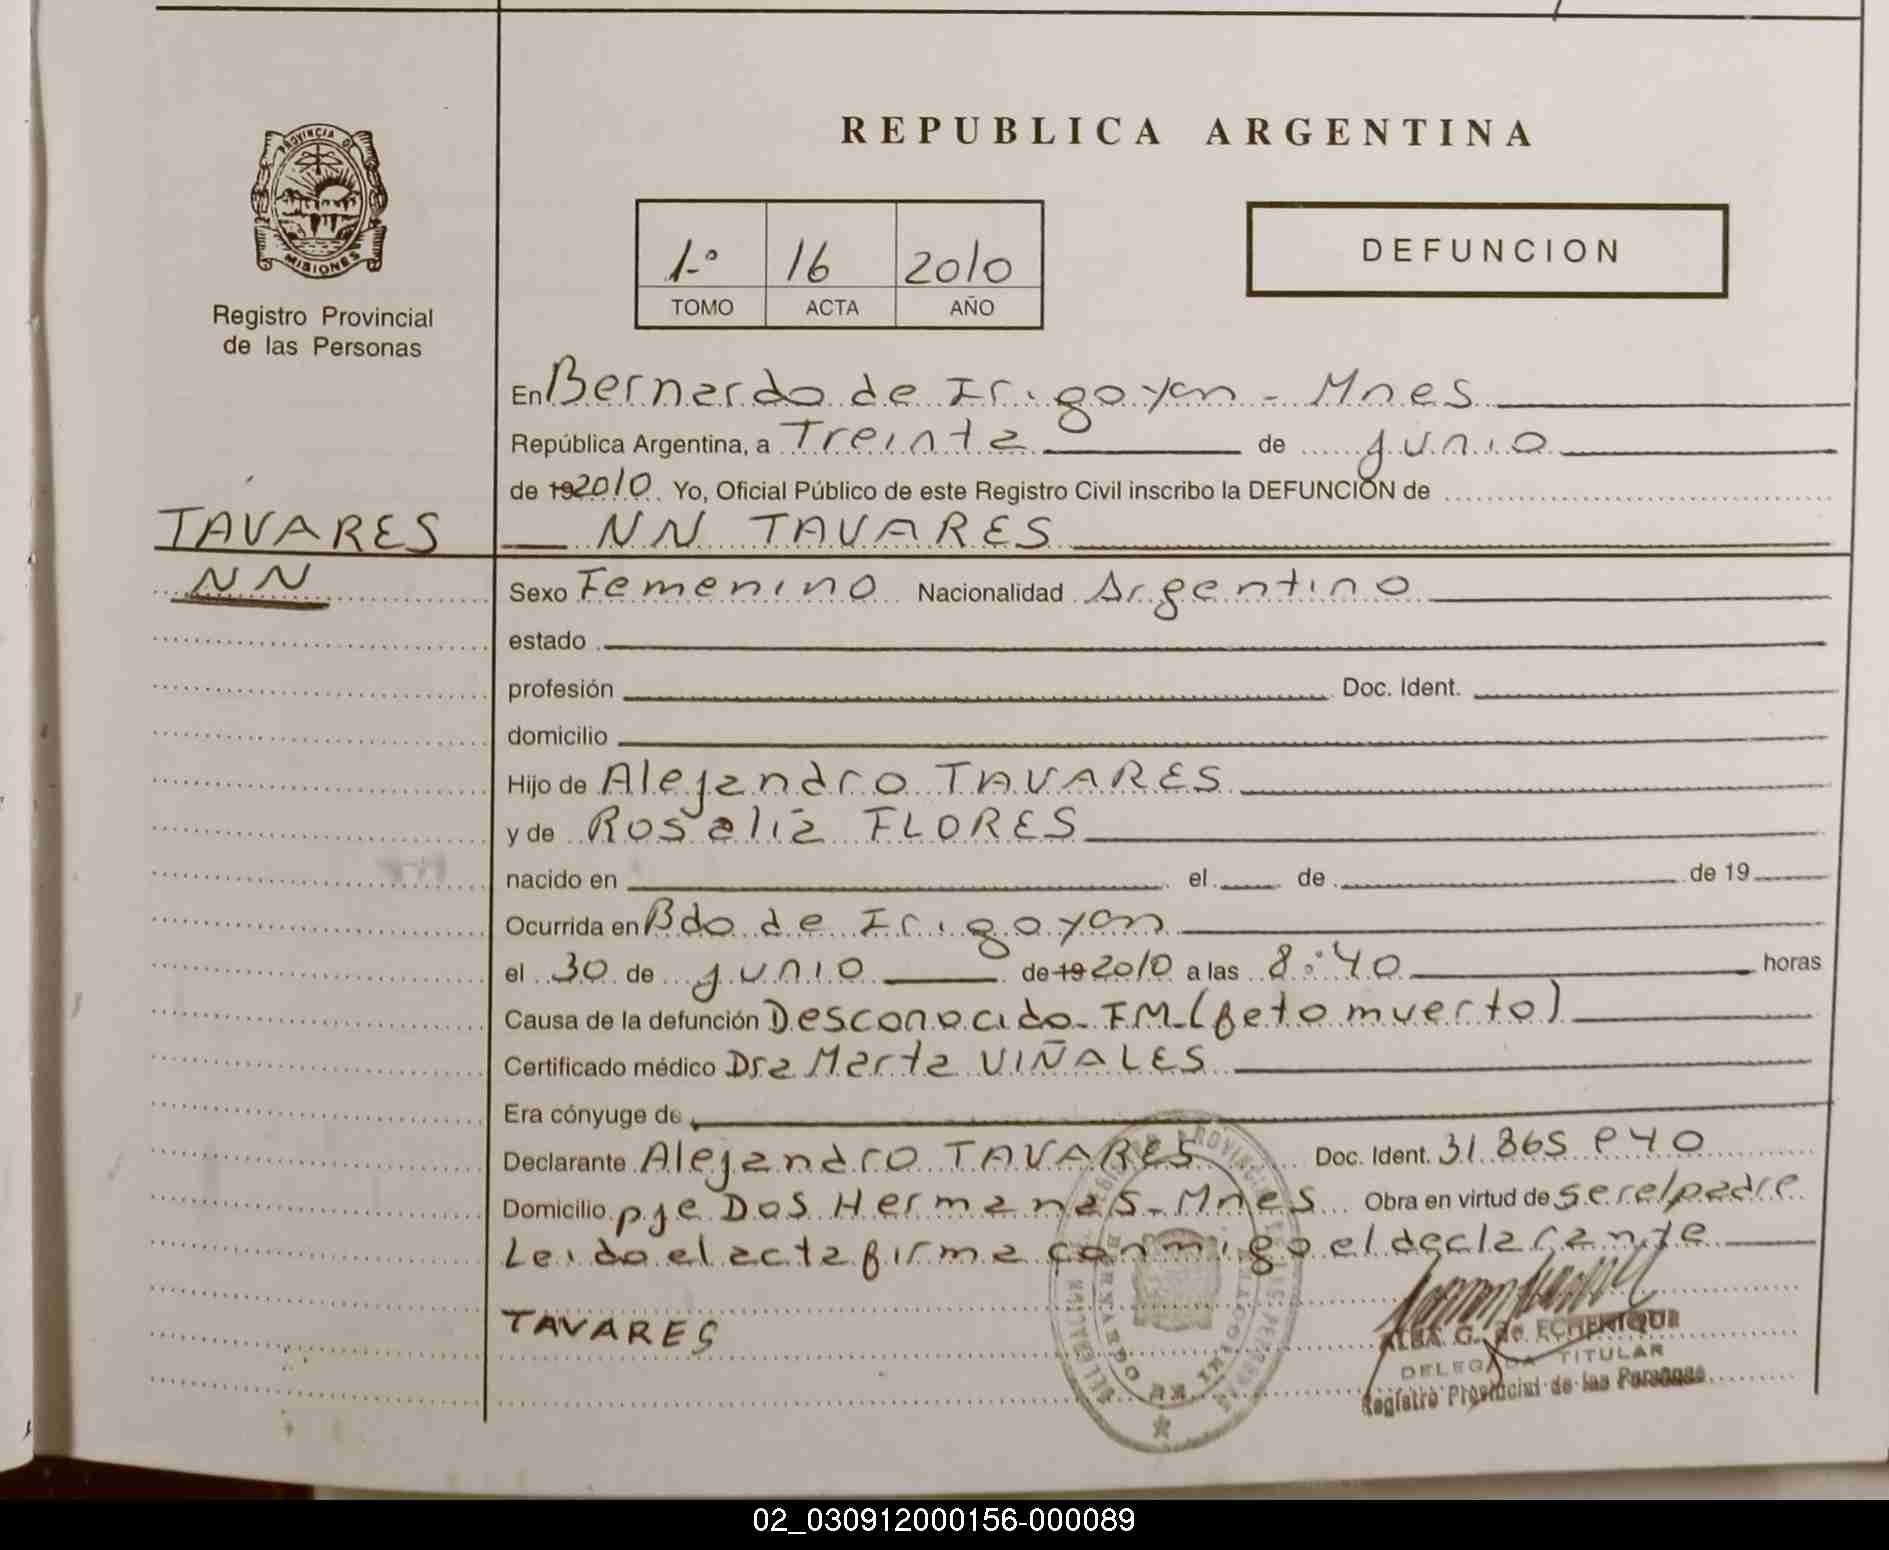 REPUBLICA ARGENTINA
PROVINCIA DE
MISIONES
Registro Provincial
de las Personas
1-º 16 2010
TOMO ACTA AÑO
DEFUNCION
En Bernardo de Irigoyen - Mnes
República Argentina, a Treinta de junio
de 19 2010 Yo, Oficial Público de este Registro Civil inscribo la DEFUNCIÓN de
TAVARES
NN
NN TAVARES
Sexo Femenino Nacionalidad Argentino
estado
profesión Doc. Ident.
domicilio
Hijo de Alejandro TAVARES
y de Rosalia FLORES
nacido en el de de 19
Ocurrida en Bdo de Irigoyen
el 30 de junio de 19 2010 a las 8:40 horas
Causa de la defunción Desconocido - FM (feto muerto)
Certificado médico Dra Marta VIÑALES
Era cónyuge de
Declarante Alejandro TAVARES Doc. Ident. 31.865
Domicilio pje Dos Hermanas - Mnes Obra en virtud de ser el padre
Leido el acta firma conmigo el declarante
TAVARES
ALBA G. de ECHENIQUE
DELEGADA TITULAR
Registro Provincial de las Personas
02_030912000156-000089